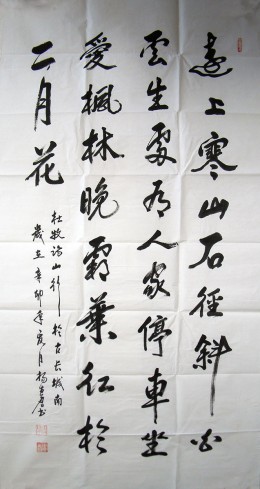 遠上寒山石徑斜白
云生處有人家停車坐
愛楓林晚霜葉红於
二月花
杜牧詩山行於古長城南
歲在辛卯年寅月楊書